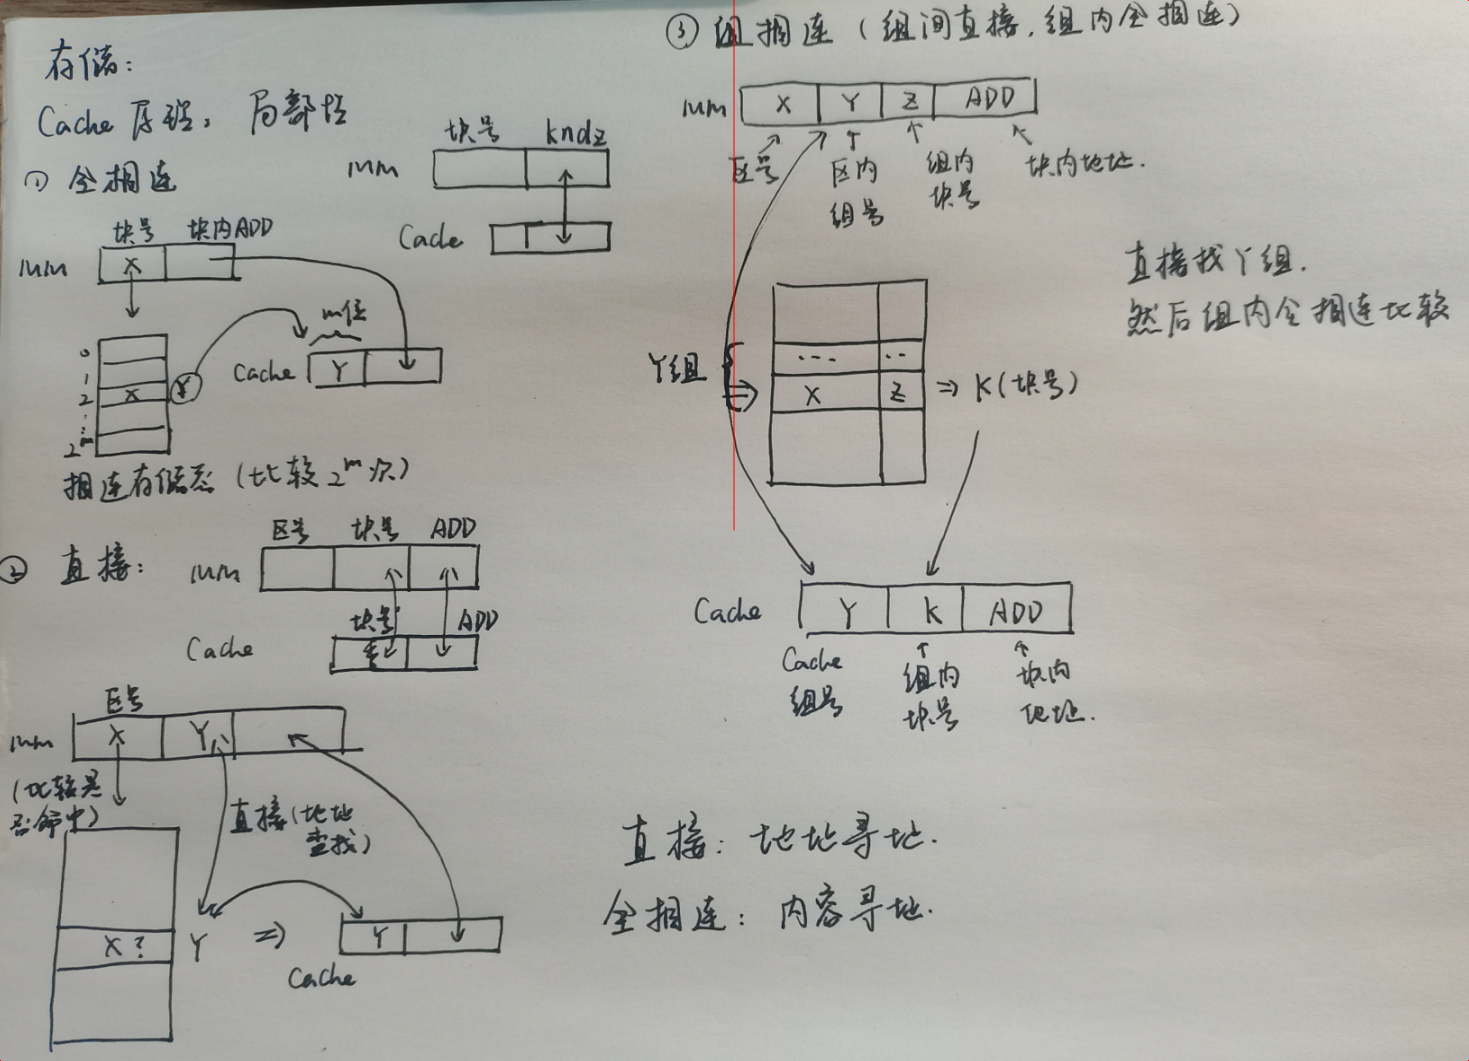 存储:
Cache 原理, 局部性
① 全相连
块号 kndz
MM
Cache
块号 块内ADD
MM X
m位
0
1
2 X Y
⋮
2^m
Cache Y
相连存储器 (比较2^m次)
② 直接:
区号 块号 ADD
MM
块号 ADD
Cache
区号
MM X Y
(比较是
否命中)
直接(地址
查找)
X? Y ⇒ Y
Cache
③ 组相连 (组间直接, 组内全相连)
MM X Y Z ADD
区号
区内
组号
组内
块号
块内地址.
直接找Y组.
然后组内全相连比较
Y组
... ..
X Z ⇒ K(块号)
Cache Y K ADD
Cache
组号
组内
块号
块内
地址.
直接: 地址寻址.
全相连: 内容寻址.